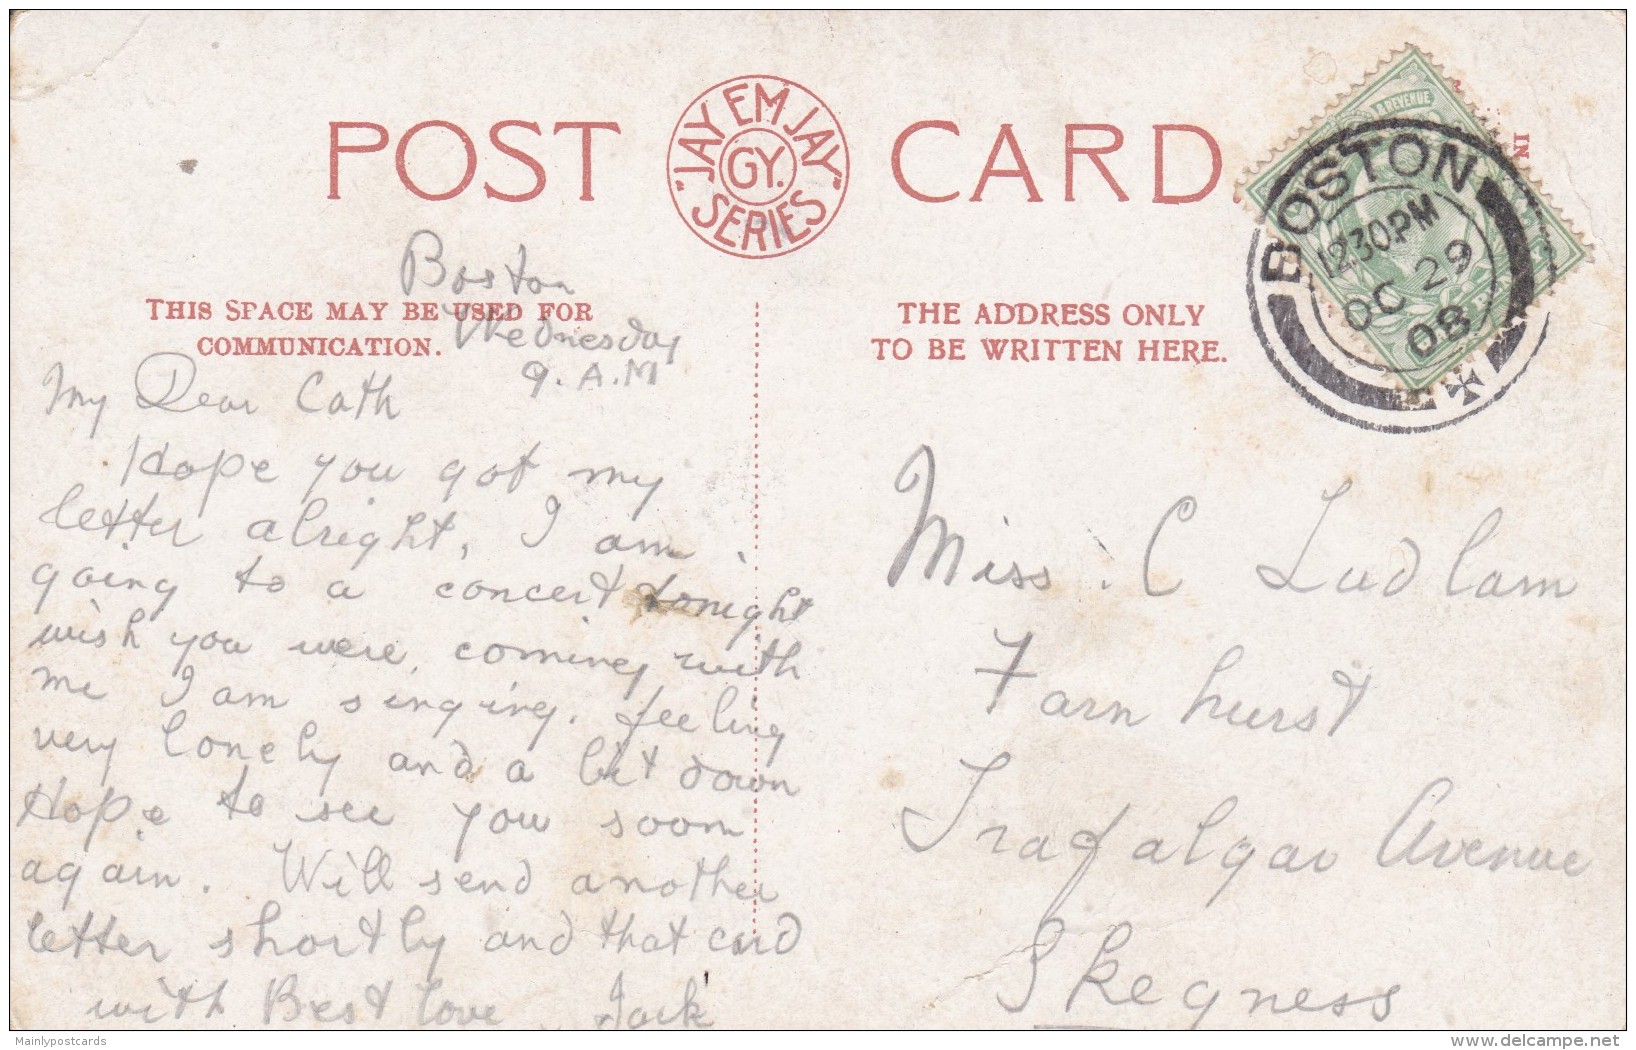 POST CARD
"JAY EM JAY" SERIES
GY.
& REVENUE
IN
BOSTON
12.30PM
OC 29
08
THIS SPACE MAY BE USED FOR
COMMUNICATION.
THE ADDRESS ONLY
TO BE WRITTEN HERE.
Boston
Wednesday
9. A.M
My Dear Cath
Hope you got my
letter alright, I am
going to a concert tonight
wish you were coming with
me I am singing. feeling
very lonely and a bit down
Hope to see you soon
again. Will send another
letter shortly and that card
with Best love Jack
Miss. C Ludlam
Farnhurst
Trafalgar Avenue
Skegness
Mainlypostcards
delcampe.net